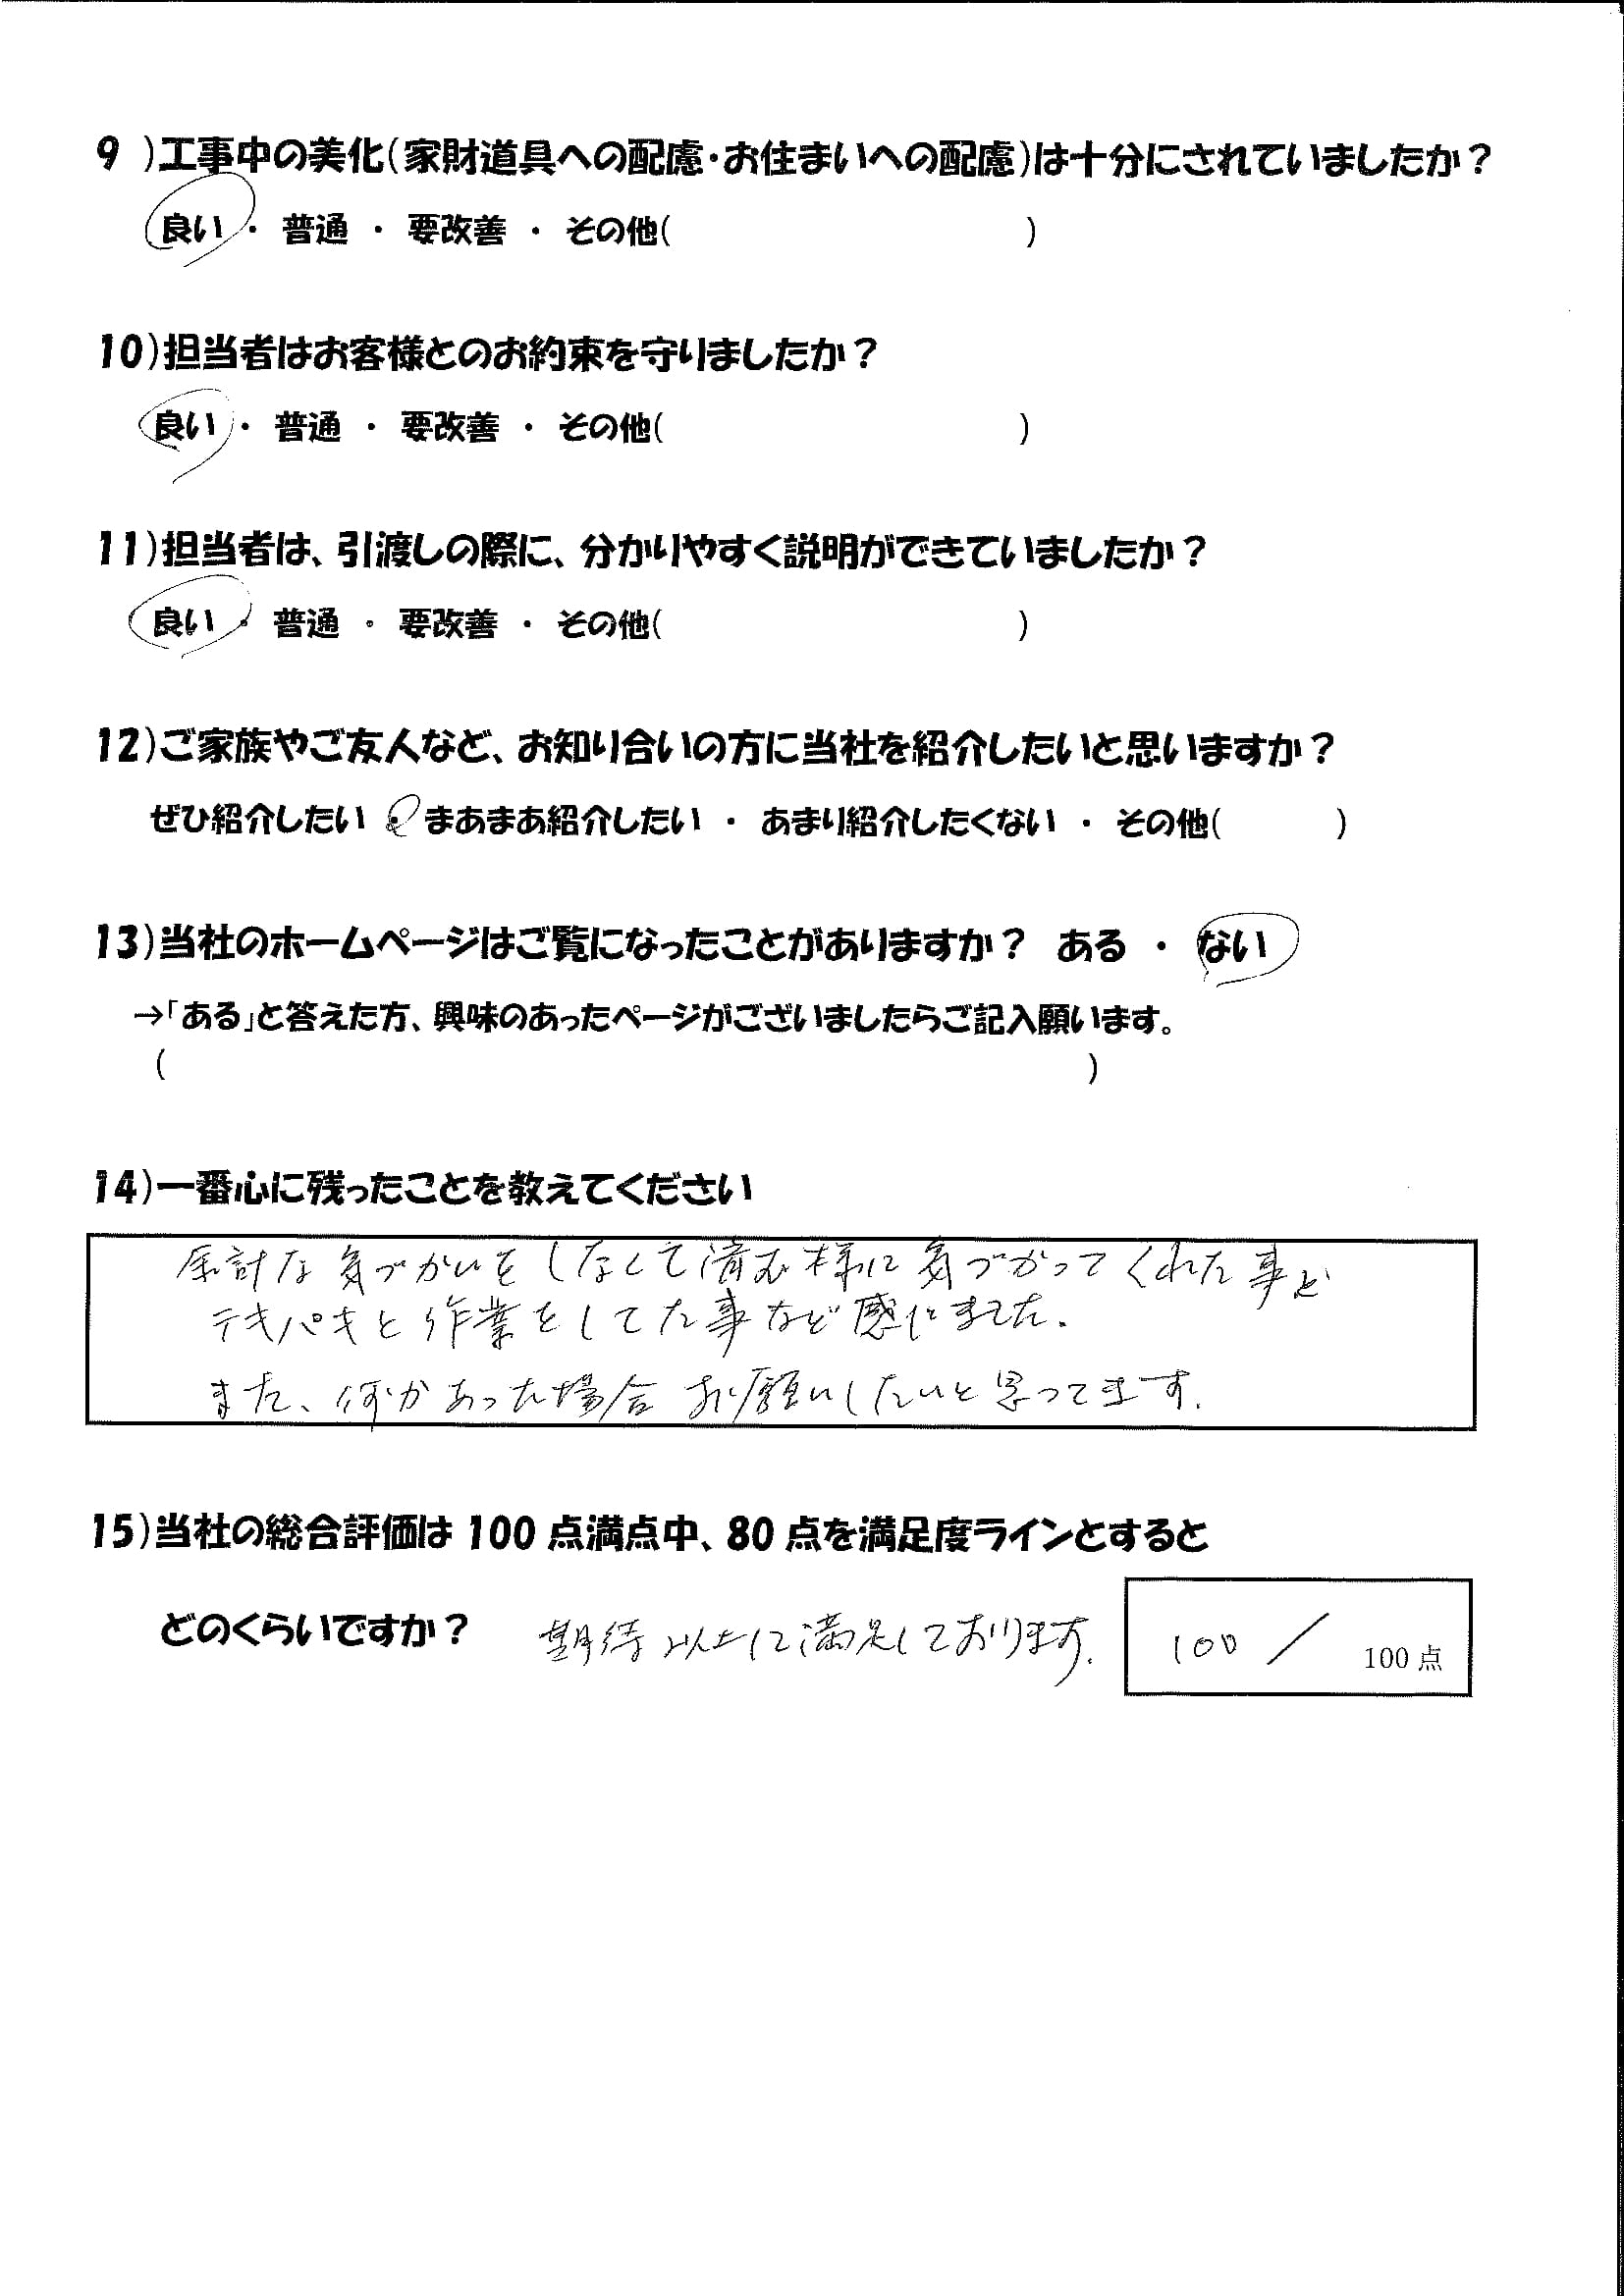 9 )工事中の美化(家財道具への配慮・お住まいへの配慮)は十分にされていましたか？
良い ・ 普通 ・ 要改善 ・ その他( )
10)担当者はお客様とのお約束を守りましたか？
良い ・ 普通 ・ 要改善 ・ その他( )
11)担当者は、引渡しの際に、分かりやすく説明ができていましたか？
良い ・ 普通 ・ 要改善 ・ その他( )
12)ご家族やご友人など、お知り合いの方に当社を紹介したいと思いますか？
ぜひ紹介したい ・ まあまあ紹介したい ・ あまり紹介したくない ・ その他( )
13)当社のホームページはご覧になったことがありますか？ ある ・ ない
→「ある」と答えた方、興味のあったページがございましたらご記入願います。
( )
14)一番心に残ったことを教えてください
余計な気づかいをしなくて済む様に気づかってくれた事と
テキパキと作業をしてた事など感じました.
また、何かあった場合お願いしたいと思ってます.
15)当社の総合評価は 100 点満点中、80 点を満足度ラインとすると
どのくらいですか？ 期待以上に満足しております. 100 ／ 100 点